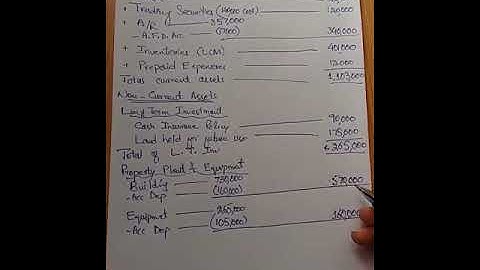 + Trading Securities (
120,000
+ A/R — 357,000
- A.F.D. Ac. (17,000) 340,000
+ Inventories (LCM) 401,000
+ Prepaid Expenses 12,000
Total current assets
Non-Current Assets
Long Term Investment
Cash Insurance Policy 90,000
Land held for future use 175,000
Total of L. T. Inv 265,000
Property Plant & Equipment
Building — 730,000
- Acc Dep (160,000) 570,000
Equipment — 265,000
- Acc Dep (105,000) 160,000